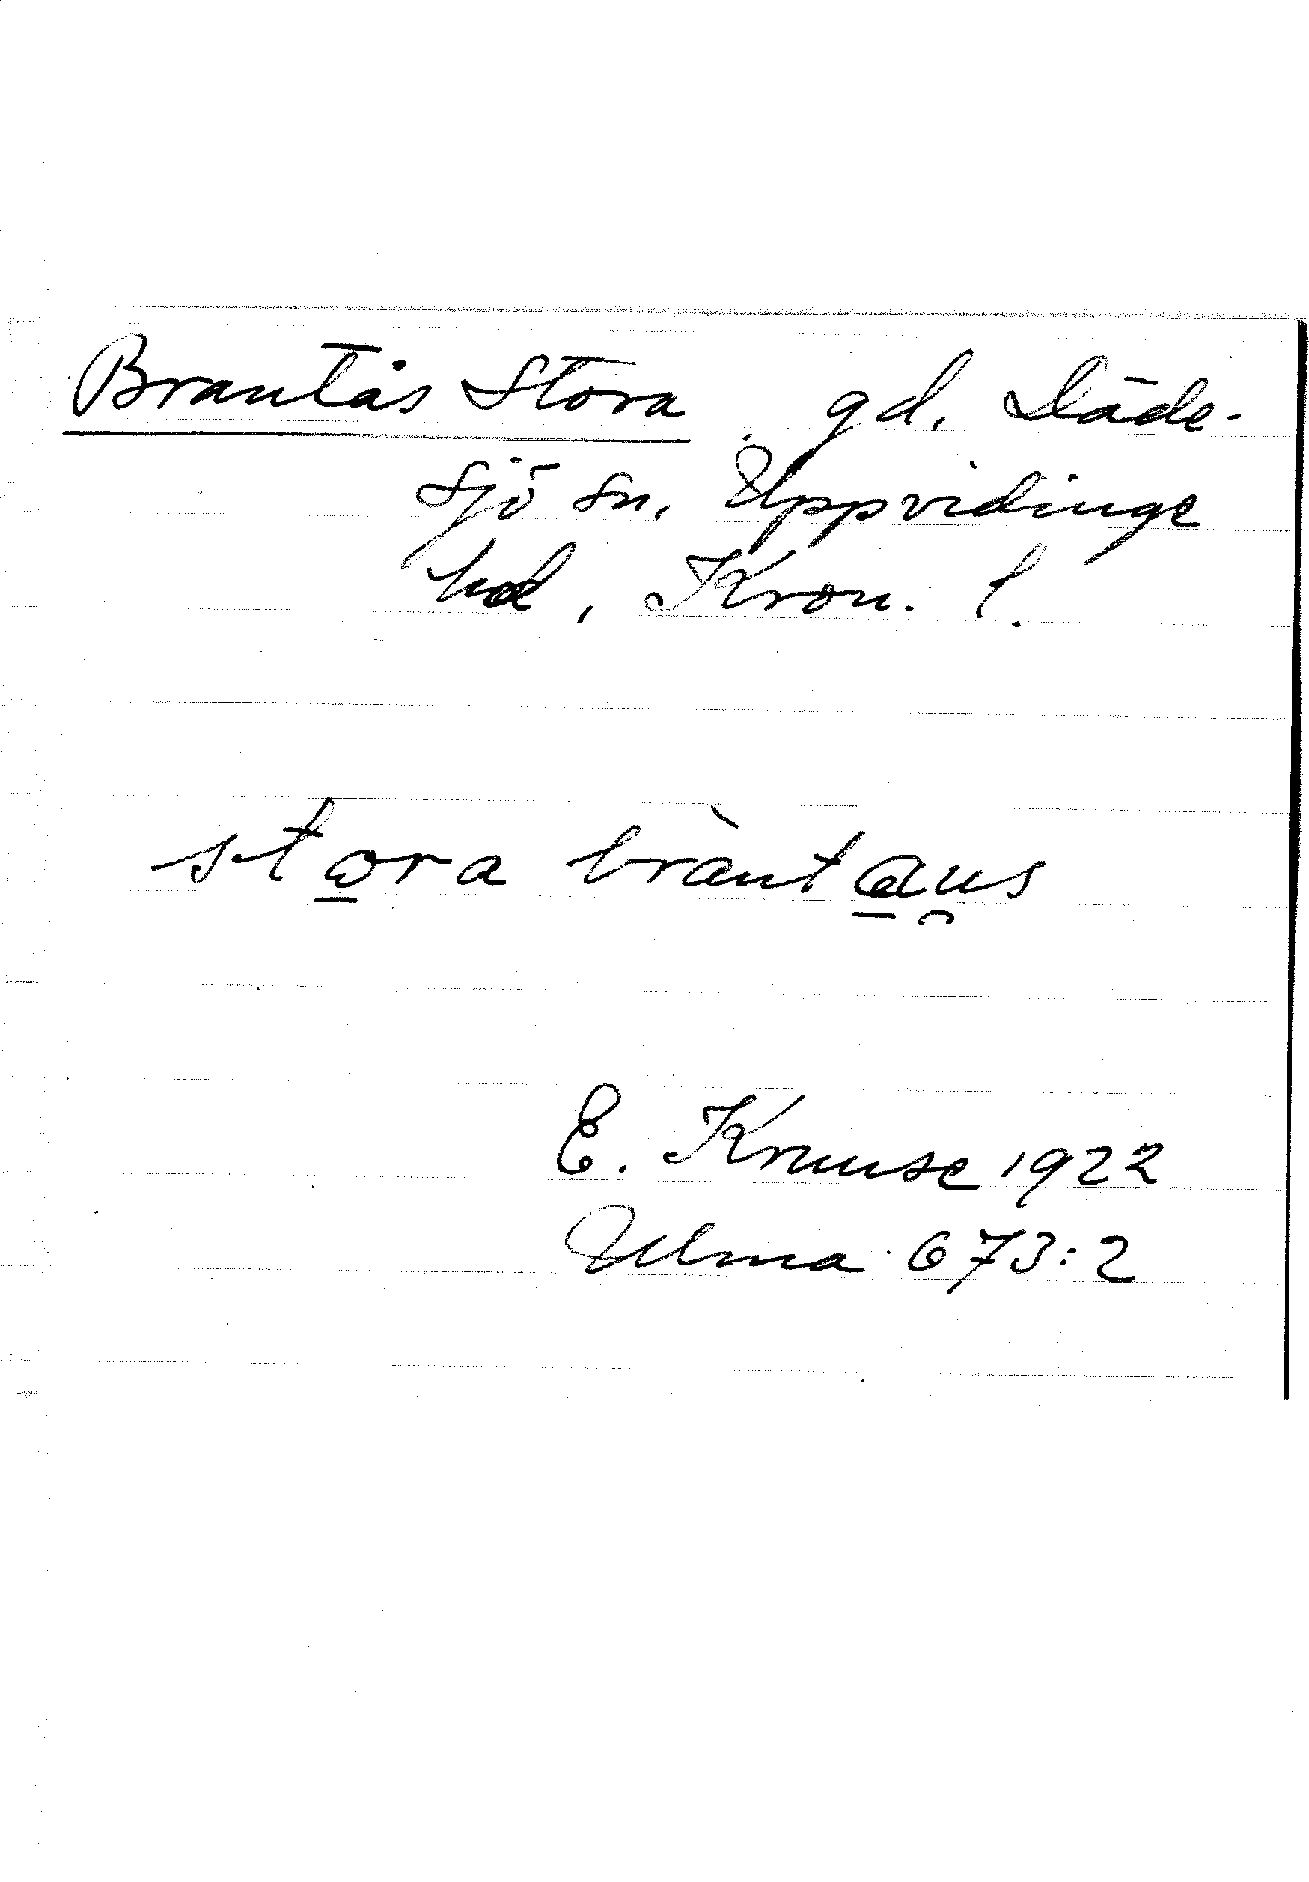 Brantås Stora gd. Däde-
sjö sn. Uppvidinge
hd, Kron. l.
stora bràntaus
E. Kruuse 1922
Ulma 673:2